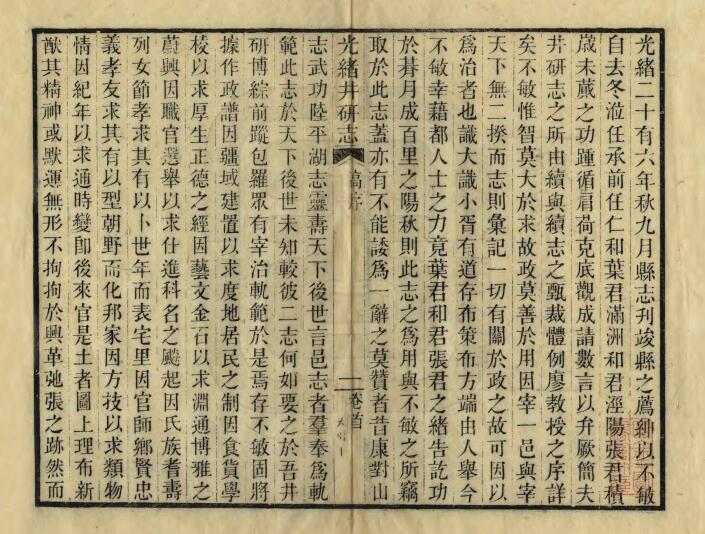 光緒二十有六年秋九月縣志刊竣縣之薦紳以不敏
自去冬涖任承前任仁和葉君滿洲和君涇陽張君積
歲未蕆之功踵循肩荷克底觀成請數言以弁厥簡夫
井研志之所由續與續志之甄裁體例廖教授之序詳
矣不敏惟智莫大於求故政莫善於用因宰一邑與宰
天下無二揆而志則彙記一切有關於政之故可因以
爲治者也識大識小胥有道存布策布方端由人舉今
不敏幸藉都人士之力竟葉君和君張君之緒告訖功
於朞月成百里之陽秋則此志之爲用與不敏之所竊
取於此志蓋亦有不能諉爲一辭之莫贊者昔康對山
光緒井研志
稿序
一
卷首
志武功陸平湖志靈壽天下後世言邑志者羣奉爲軌
範此志於天下後世未知較彼二志何如要之於吾井
研博綜前蹤包羅眾有宰治軌範於是焉存不敏固將
據作政譜因疆域建置以求度地居民之制因食貨學
校以求厚生正德之經因藝文金石以求淵通博雅之
蔚興因職官選舉以求仕進科名之飈起因氏族耆壽
列女節孝求其有以卜世年而表宅里因官師鄉賢忠
義孝友求其有以型朝野而化邦家因方技以求類物
情因紀年以求通時變卽後來官是土者圖上理布新
猷其精神或默運無形不拘拘於興革弛張之跡然而